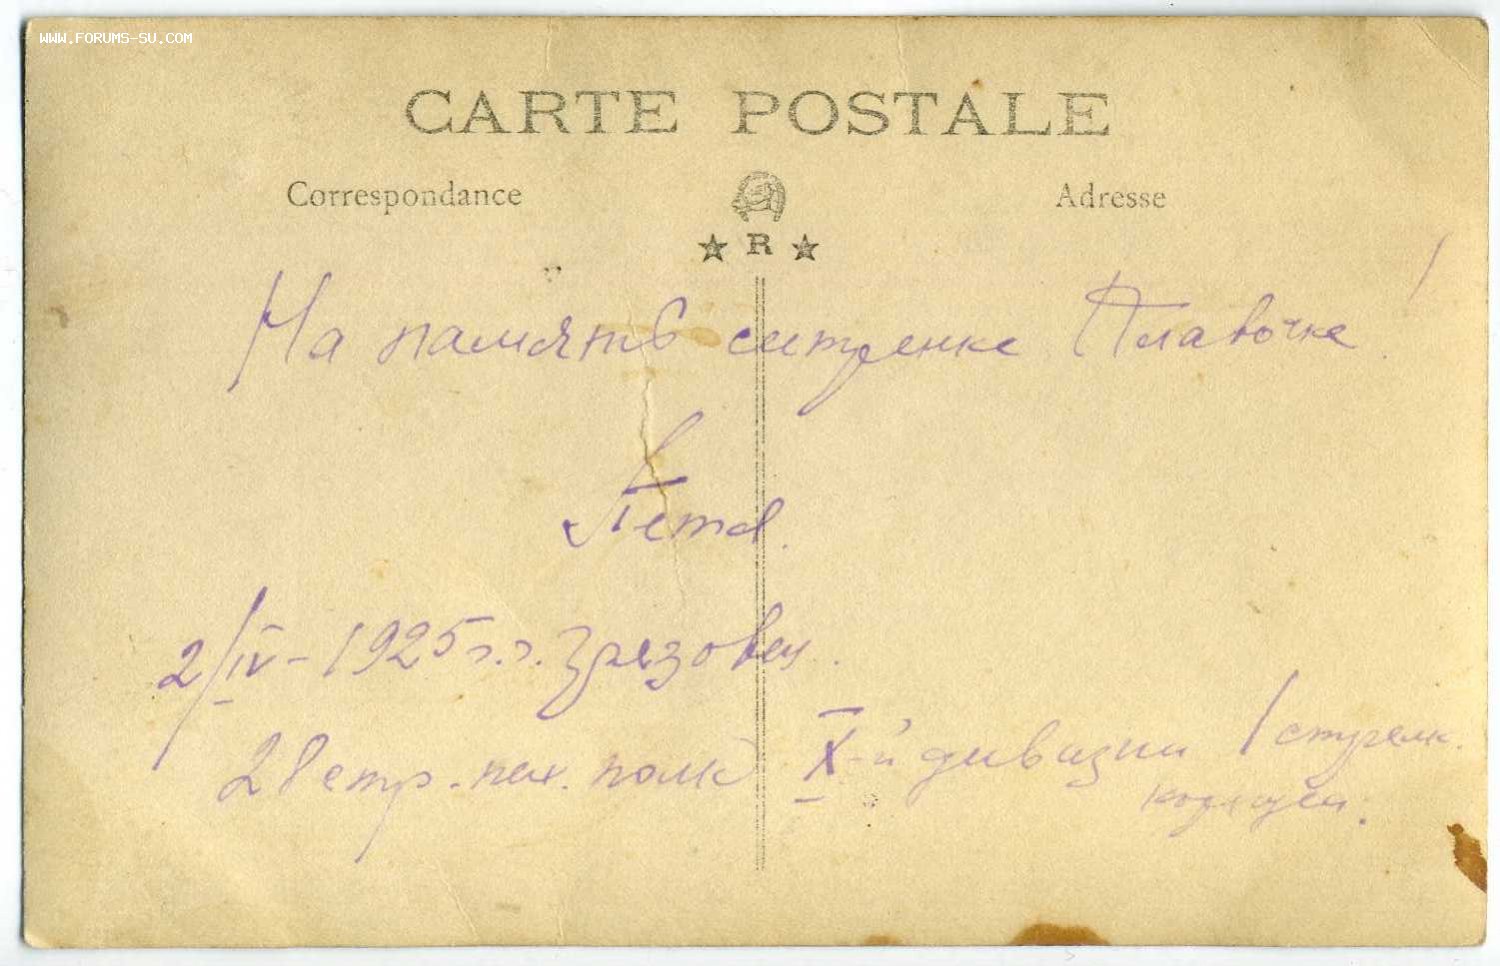 WWW.FORUMS-SU.COM
CARTE POSTALE
Correspondance
Adresse
R
На память сестренке Клавочке!
Петя.
2/IV-1925 г.г.
28 стр. пех. полк X-й дивизии 1 стрелк.
корпуса.